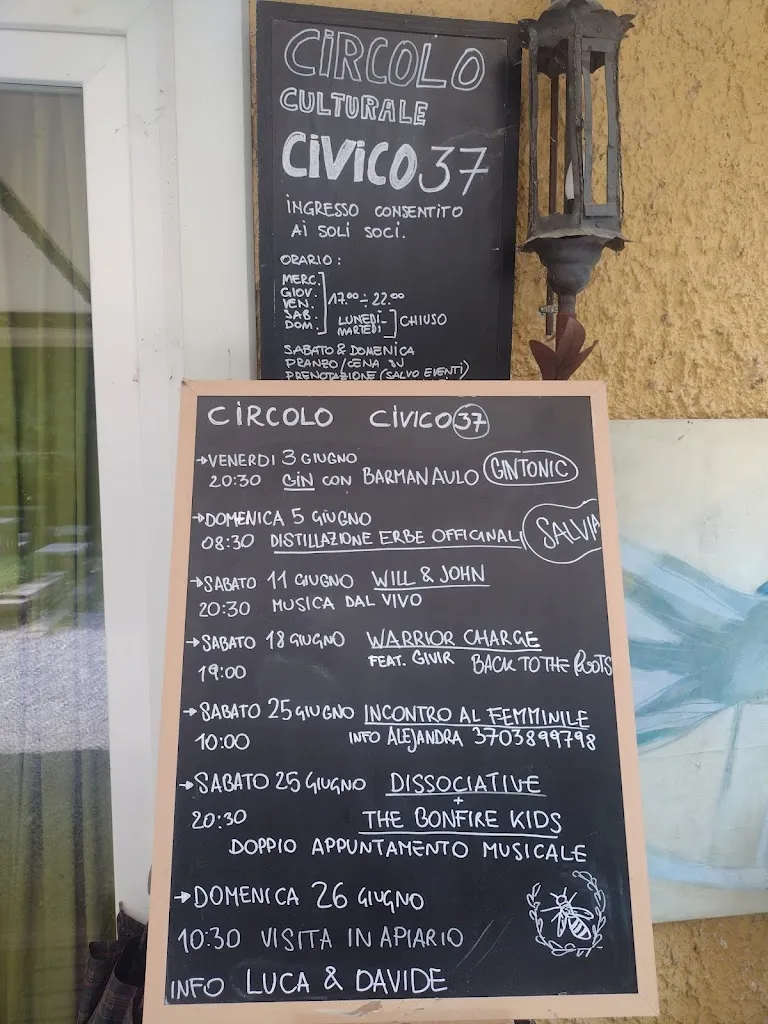 CIRCOLO
CULTURALE
CIVICO 37
INGRESSO CONSENTITO
AI SOLI SOCI.
ORARIO:
MERC.
GIOV.
VEN.
SAB.
DOM.
17.00÷22.00
LUNEDÌ-
MARTEDÌ
CHIUSO
SABATO & DOMENICA
PRANZO/CENA SU
PRENOTAZIONE (SALVO EVENTI)
CIRCOLO CIVICO 37
→VENERDI 3 GIUGNO
20:30 GIN CON BARMAN AULO GINTONIC
→DOMENICA 5 GIUGNO
08:30 DISTILLAZIONE ERBE OFFICINALI SALVIA
→SABATO 11 GIUGNO WILL & JOHN
20:30 MUSICA DAL VIVO
→SABATO 18 GIUGNO WARRIOR CHARGE
19:00 FEAT. GIVIR BACK TO THE ROOTS
→SABATO 25 GIUGNO INCONTRO AL FEMMINILE
10:00 INFO ALEJANDRA 3703899798
→SABATO 25 GIUGNO DISSOCIATIVE
+
20:30 THE BONFIRE KIDS
DOPPIO APPUNTAMENTO MUSICALE
→DOMENICA 26 GIUGNO
10:30 VISITA IN APIARIO
INFO LUCA & DAVIDE